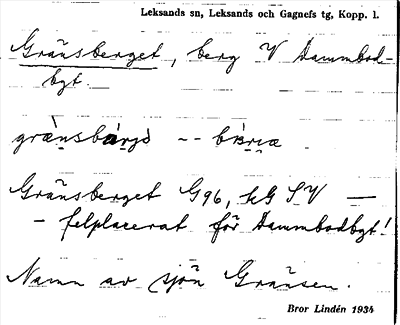 Leksands sn, Leksands och Gagnefs tg, Kopp. l.
Gränsberget, berg V Dammbod-
bgt.
gränsbärjə -- bärjəa
Gränsberget G96, hG SV —
– felplacerat för Dammbodbgt!
Namn av sjön Gränsen.
Bror Lindén 1934